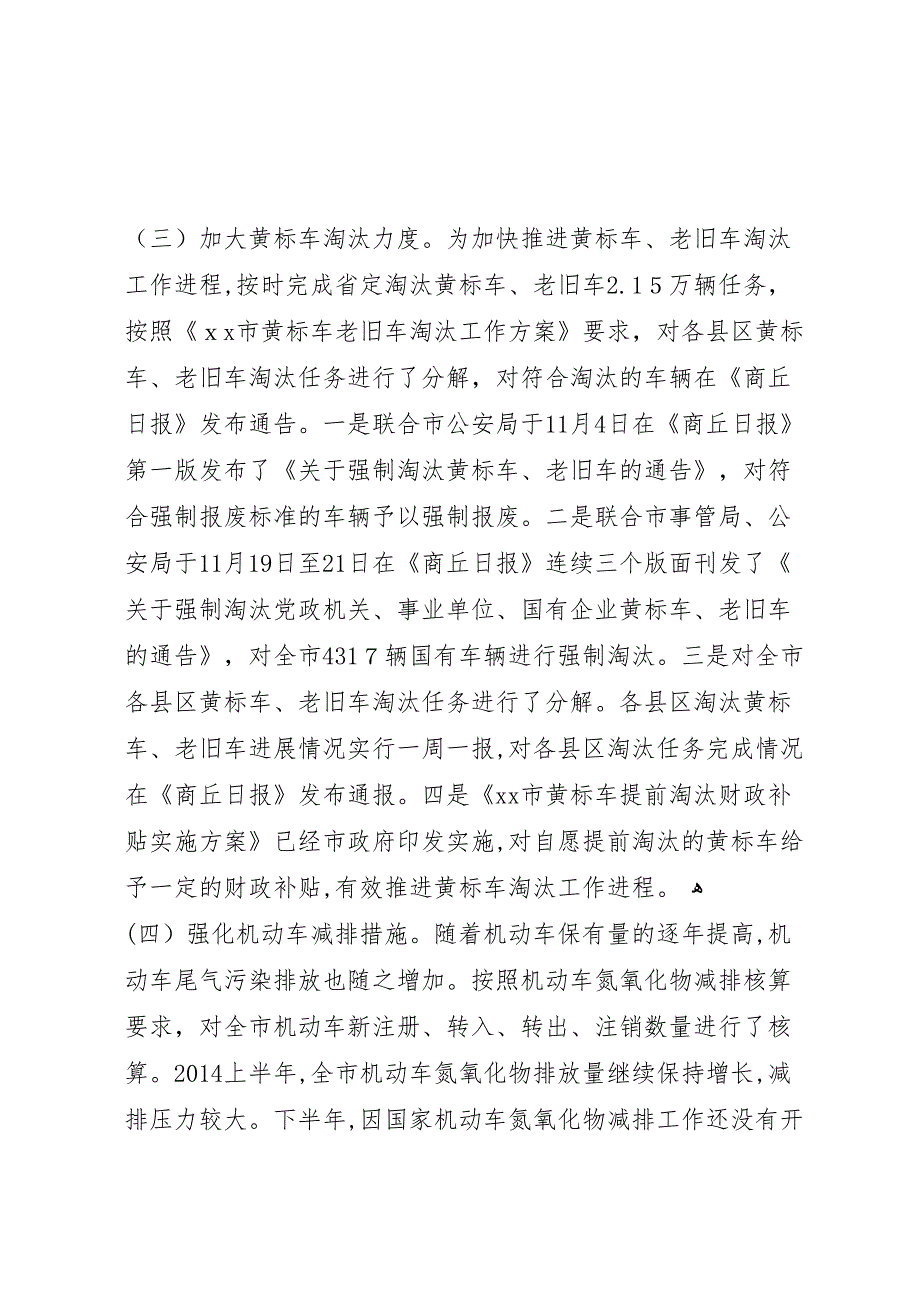 （三）加大黄标车淘汰力度。为加快推进黄标车、老旧车淘汰
工作进程,按时完成省定淘汰黄标车、老旧车2.15万辆任务，
按照《xx市黄标车老旧车淘汰工作方案》要求，对各县区黄标
车、老旧车淘汰任务进行了分解，对符合淘汰的车辆在《商丘
日报》发布通告。一是联合市公安局于11月4日在《商丘日报》
第一版发布了《关于强制淘汰黄标车、老旧车的通告》，对符
合强制报废标准的车辆予以强制报废。二是联合市事管局、公
安局于11月19日至21日在《商丘日报》连续三个版面刊发了《
关于强制淘汰党政机关、事业单位、国有企业黄标车、老旧车
的通告》，对全市4317辆国有车辆进行强制淘汰。三是对全市
各县区黄标车、老旧车淘汰任务进行了分解。各县区淘汰黄标
车、老旧车进展情况实行一周一报,对各县区淘汰任务完成情况
在《商丘日报》发布通报。四是《xx市黄标车提前淘汰财政补
贴实施方案》已经市政府印发实施,对自愿提前淘汰的黄标车给
予一定的财政补贴,有效推进黄标车淘汰工作进程。
(四）强化机动车减排措施。随着机动车保有量的逐年提高,机
动车尾气污染排放也随之增加。按照机动车氮氧化物减排核算
要求，对全市机动车新注册、转入、转出、注销数量进行了核
算。2014上半年,全市机动车氮氧化物排放量继续保持增长,减
排压力较大。下半年,因国家机动车氮氧化物减排工作还没有开